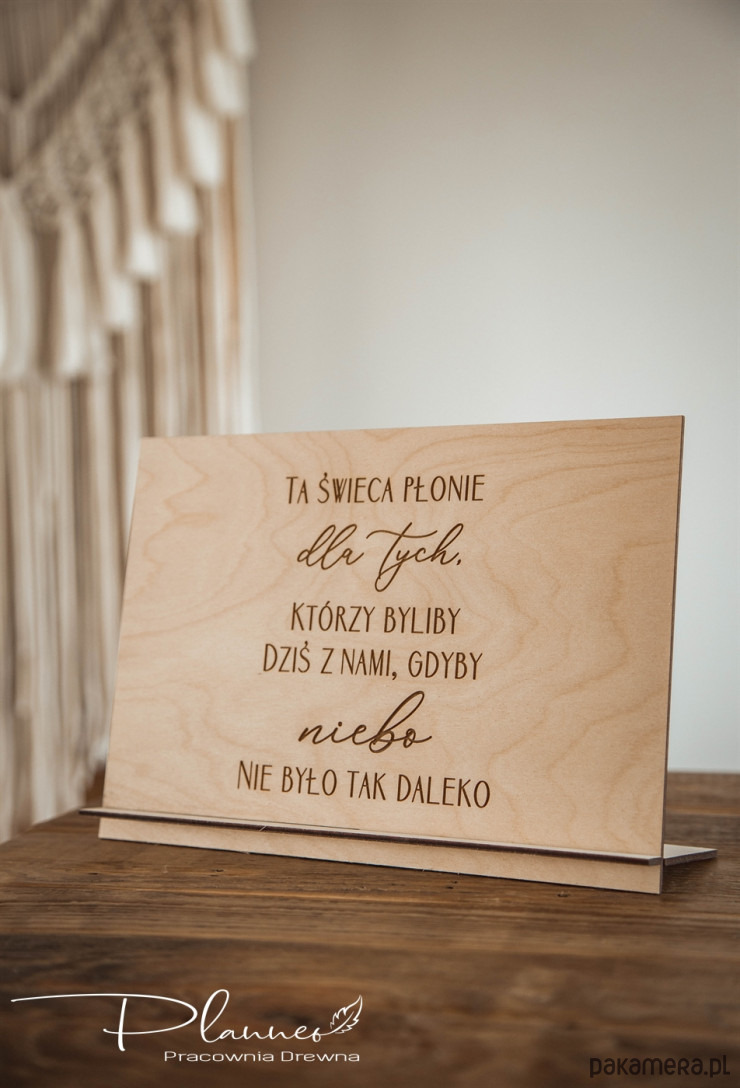 TA ŚWIECA PŁONIE
dla Tych,
KTÓRZY BYLIBY
DZIŚ Z NAMI, GDYBY
niebo
NIE BYŁO TAK DALEKO
Planneo
Pracownia Drewna
pakamera.pl